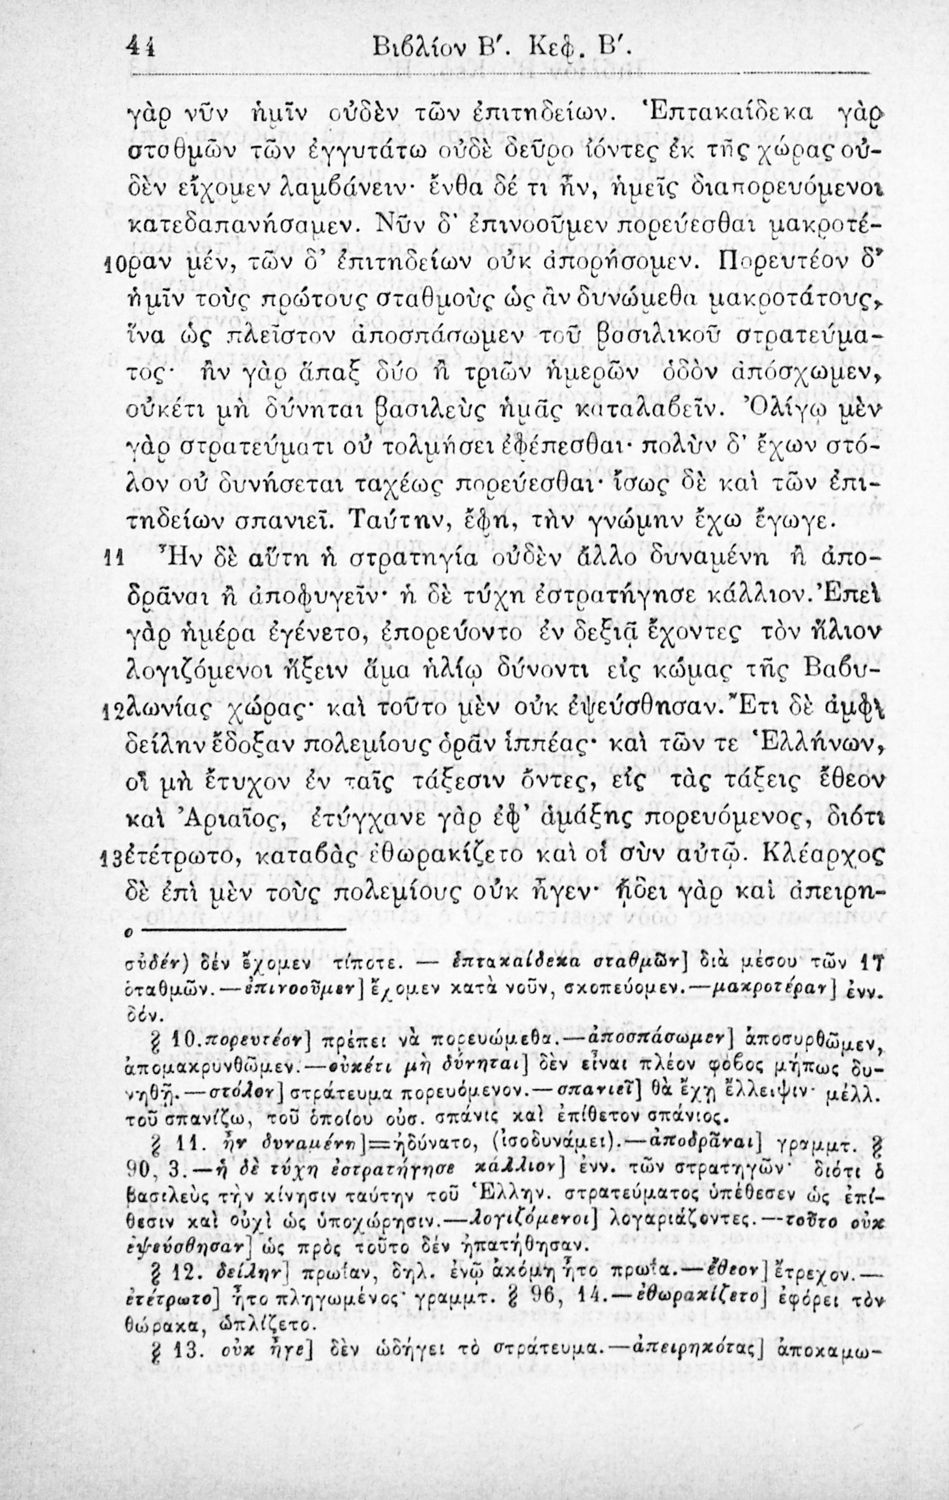 44 Βιβλίον Β΄. Κεφ. Β΄.
γὰρ νῦν ἡμῖν οὐδὲν τῶν ἐπιτηδείων. Ἑπτακαίδεκα γὰρ
σταθμῶν τῶν ἐγγυτάτω οὐδὲ δεῦρο ἰόντες ἐκ τῆς χώρας οὐ-
δὲν εἴχομεν λαμβάνειν· ἔνθα δέ τι ἦν, ἡμεῖς διαπορευόμενοι
κατεδαπανήσαμεν. Νῦν δ' ἐπινοοῦμεν πορεύεσθαι μακροτέ-
10ραν μέν, τῶν δ' ἐπιτηδείων οὐκ ἀπορήσομεν. Πορευτέον δ'
ἡμῖν τοὺς πρώτους σταθμοὺς ὡς ἂν δυνώμεθα μακροτάτους,
ἵνα ὡς πλεῖστον ἀποσπάσωμεν τοῦ βασιλικοῦ στρατεύμα-
τος· ἢν γὰρ ἅπαξ δύο ἢ τριῶν ἡμερῶν ὁδὸν ἀπόσχωμεν,
οὐκέτι μὴ δύνηται βασιλεὺς ἡμᾶς καταλαβεῖν. Ὀλίγῳ μὲν
γὰρ στρατεύματι οὐ τολμήσει ἐφέπεσθαι· πολὺν δ' ἔχων στό-
λον οὐ δυνήσεται ταχέως πορεύεσθαι· ἴσως δὲ καὶ τῶν ἐπι-
τηδείων σπανιεῖ. Ταύτην, ἔφη, τὴν γνώμην ἔχω ἔγωγε.
11 Ἦν δὲ αὕτη ἡ στρατηγία οὐδὲν ἄλλο δυναμένη ἢ ἀπο-
δρᾶναι ἢ ἀποφυγεῖν· ἡ δὲ τύχη ἐστρατήγησε κάλλιον. Ἐπεὶ
γὰρ ἡμέρα ἐγένετο, ἐπορεύοντο ἐν δεξιᾷ ἔχοντες τὸν ἥλιον
λογιζόμενοι ἥξειν ἅμα ἡλίῳ δύνοντι εἰς κώμας τῆς Βαβυ-
12λωνίας χώρας· καὶ τοῦτο μὲν οὐκ ἐψεύσθησαν. Ἔτι δὲ ἀμφὶ
δείλην ἔδοξαν πολεμίους ὁρᾶν ἱππέας· καὶ τῶν τε Ἑλλήνων,
οἳ μὴ ἔτυχον ἐν ταῖς τάξεσιν ὄντες, εἰς τὰς τάξεις ἔθεον
καὶ Ἀριαῖος, ἐτύγχανε γὰρ ἐφ' ἁμάξης πορευόμενος, διότι
13ἐτέτρωτο, καταβὰς ἐθωρακίζετο καὶ οἱ σὺν αὐτῷ. Κλέαρχος
δὲ ἐπὶ μὲν τοὺς πολεμίους οὐκ ἦγεν· ᾔδει γὰρ καὶ ἀπειρη-
οὐδέν) δέν ἔχομεν τίποτε. — ἑπτακαίδεκα σταθμῶν] διὰ μέσου τῶν 17
σταθμῶν. — ἐπινοοῦμεν] ἔχομεν κατὰ νοῦν, σκοπεύομεν. — μακροτέραν] ἐνν.
ὁδόν.
§ 10. πορευτέον] πρέπει νὰ πορευώμεθα. — ἀποσπάσωμεν] ἀποσυρθῶμεν,
ἀπομακρυνθῶμεν. — οὐκέτι μὴ δύνηται] δὲν εἶναι πλέον φόβος μήπως δυ-
νηθῇ. — στόλον] στράτευμα πορευόμενον. — σπανιεῖ] θὰ ἔχῃ ἔλλειψιν· μέλλ.
τοῦ σπανίζω, τοῦ ὁποίου οὐσ. σπάνις καὶ ἐπίθετον σπάνιος.
§ 11. ἦν δυναμένη]=ἠδύνατο, (ἰσοδυνάμει). — ἀποδρᾶναι] γραμμτ. §
90, 3. — ἡ δὲ τύχη ἐστρατήγησε κάλλιον] ἐνν. τῶν στρατηγῶν· διότι ὁ
βασιλεὺς τὴν κίνησιν ταύτην τοῦ Ἑλλην. στρατεύματος ὑπέθεσεν ὡς ἐπί-
θεσιν καὶ οὐχὶ ὡς ὑποχώρησιν. — λογιζόμενοι] λογαριάζοντες. — τοῦτο οὐκ
ἐψεύσθησαν] ὡς πρὸς τοῦτο δέν ἠπατήθησαν.
§ 12. δείλην] πρωΐαν, δηλ. ἐνῷ ἀκόμη ἦτο πρωΐα. — ἔθεον] ἔτρεχον. —
ἐτέτρωτο] ἦτο πληγωμένος· γραμμτ. § 96, 14. — ἐθωρακίζετο] ἐφόρει τὸν
θώρακα, ὡπλίζετο.
§ 13. οὐκ ἦγε] δὲν ὡδήγει τὸ στράτευμα. — ἀπειρηκότας] ἀποκαμω-